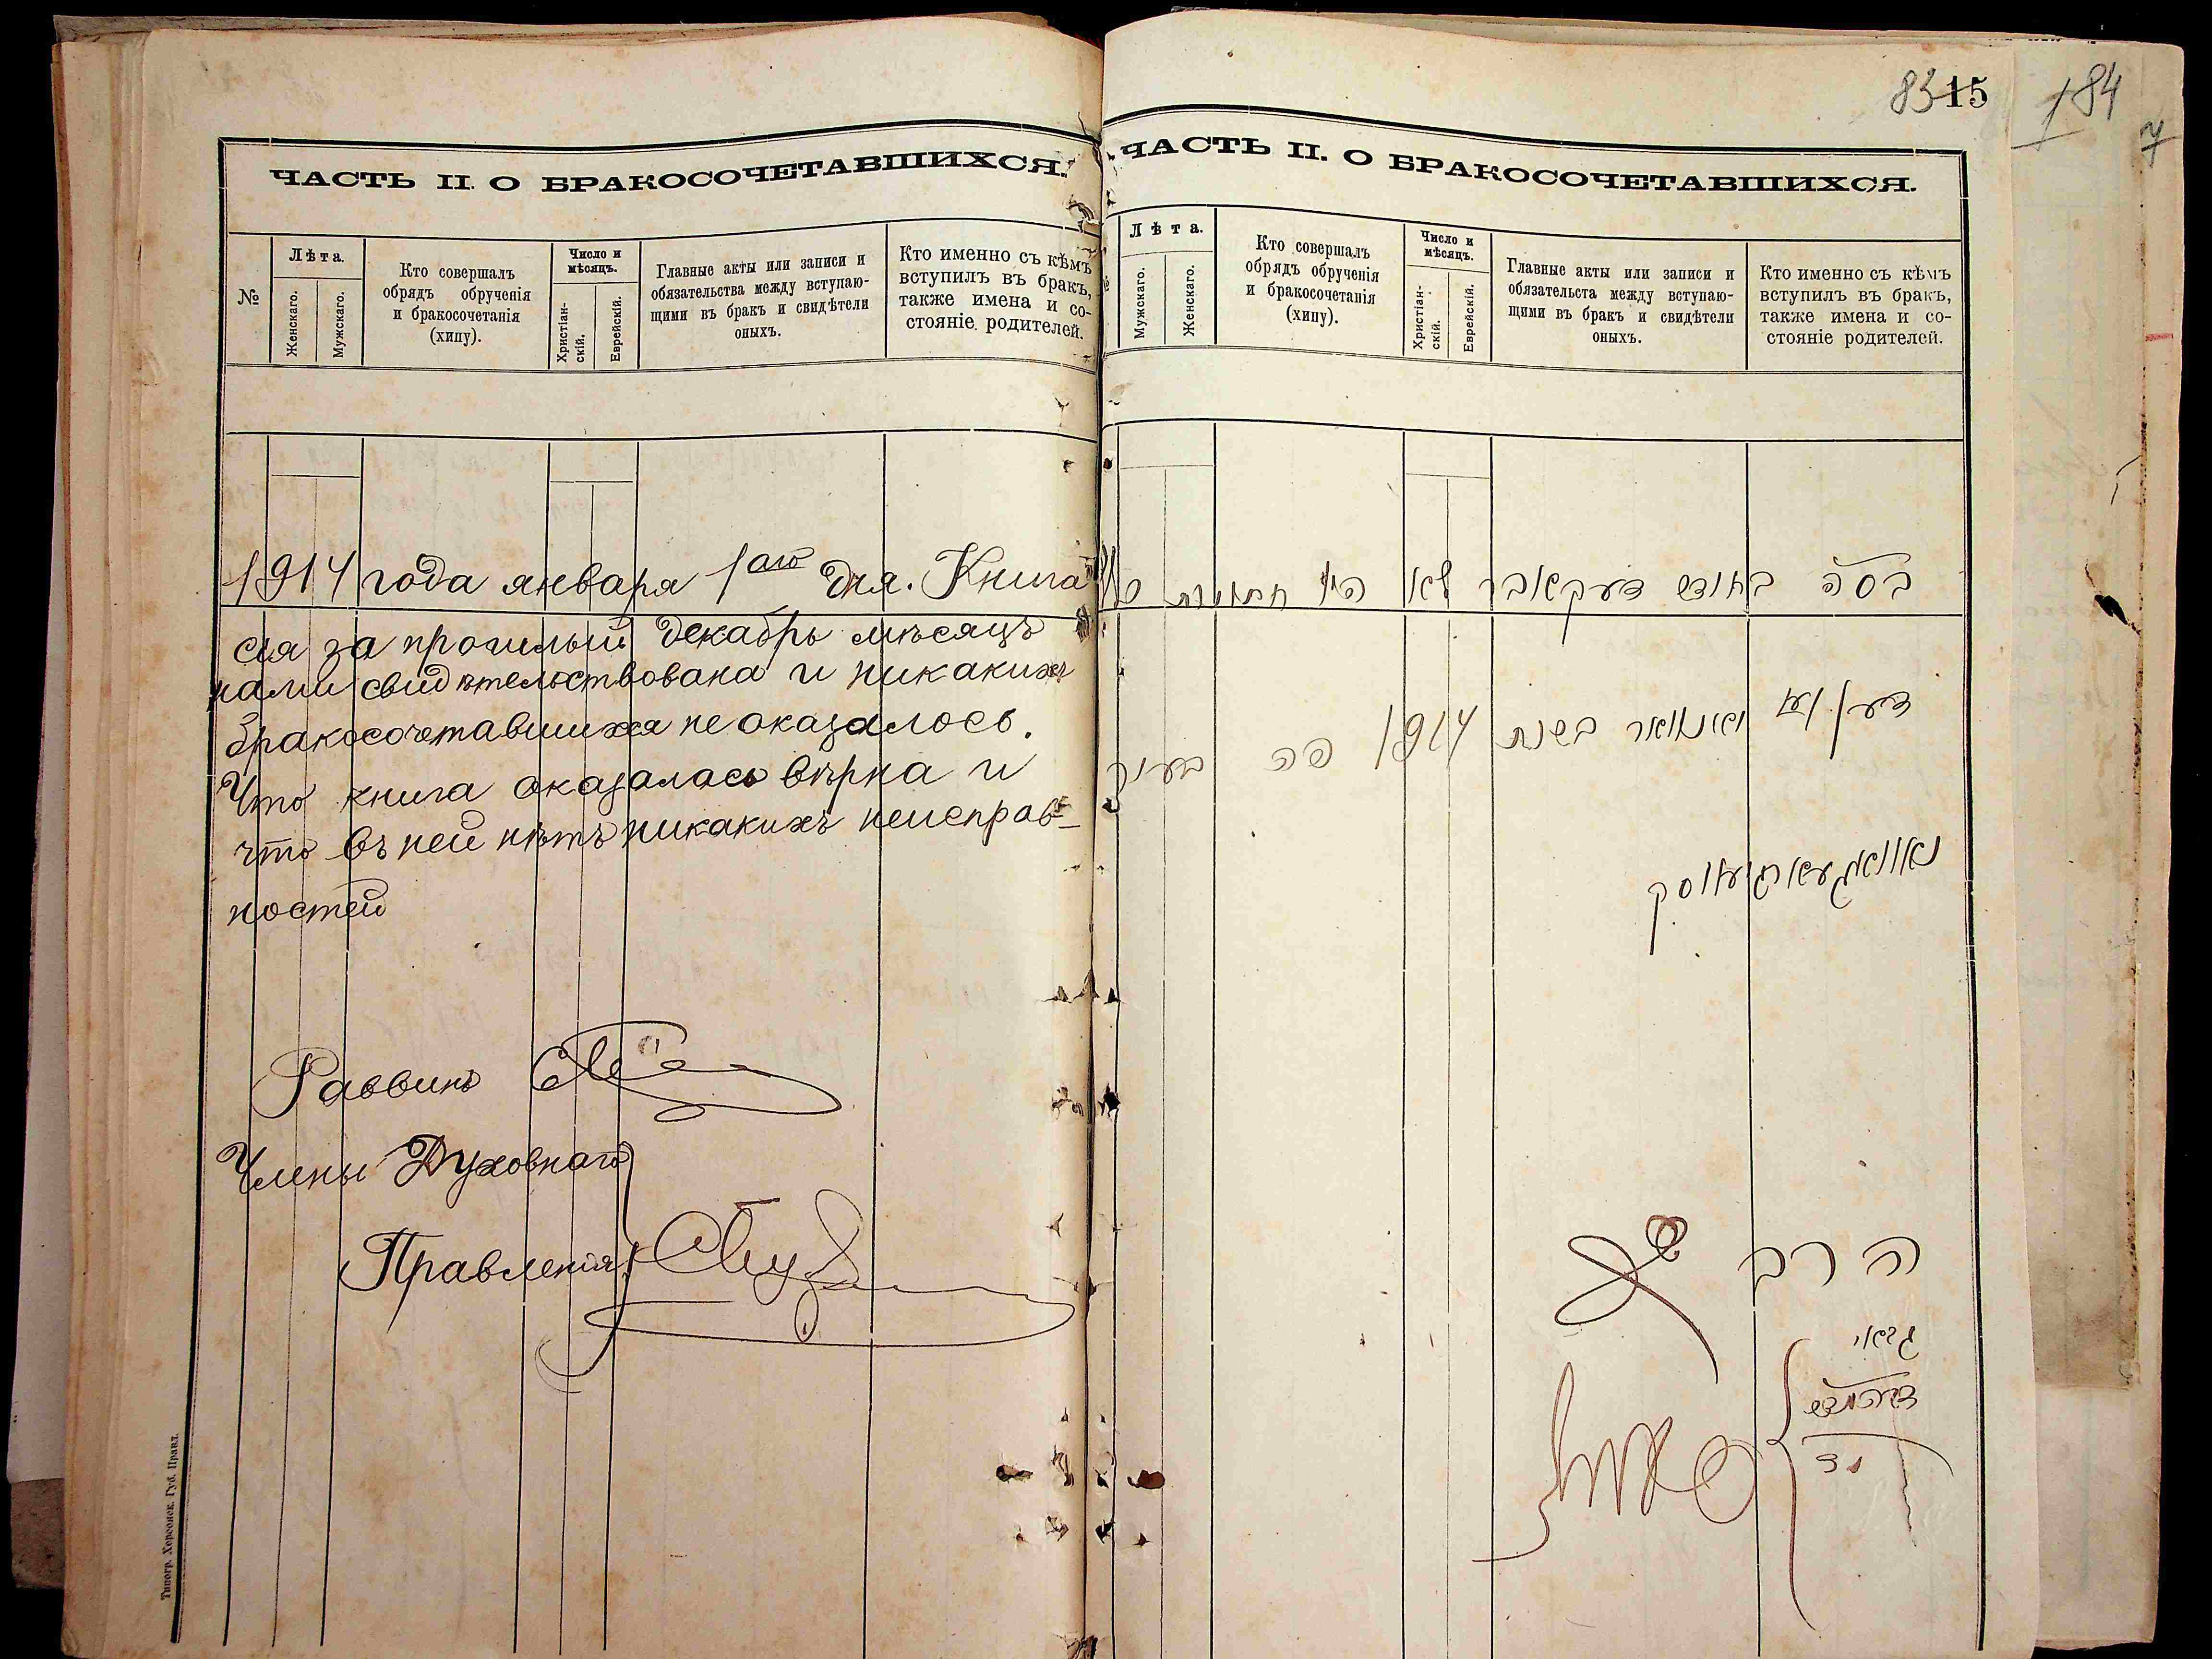 ЧАСТЬ II. О БРАКОСОЧЕТАВШИХСЯ.
№
Лѣта.
Женскаго.
Мужскаго.
Кто совершалъ
обрядъ обрученія
и бракосочетанія
(хипу).
Число и
мѣсяцъ.
Христіан-
скій.
Еврейскій.
Главные акты или записи и
обязательства между вступаю-
щими въ бракъ и свидѣтели
оныхъ.
Кто именно съ кѣмъ
вступилъ въ бракъ,
также имена и со-
стояніе родителей.
1914 года января 1аго дня. Книга
сія за прошлый декабрь мѣсяцъ
нами свидѣтельствована и никакихъ
бракосочетавшихся не оказалось.
Что книга оказалась вѣрна и
что въ ней нѣтъ никакихъ неисправ-
ностей
Раввинъ
Члены Духовнаго
Правленія
Типогр. Херсонск. Губ. Правл.
83 15
184
ЧАСТЬ II. О БРАКОСОЧЕТАВШИХСЯ.
Лѣта.
Мужскаго.
Женскаго.
Кто совершалъ
обрядъ обрученія
и бракосочетанія
(хипу).
Число и
мѣсяцъ.
Христіан-
скій.
Еврейскій.
Главные акты или записи и
обязательста между вступаю-
щими въ бракъ и свидѣтели
оныхъ.
Кто именно съ кѣмъ
вступилъ въ бракъ,
также имена и со-
стояніе родителей.
בחודש דעקאבר לא היו חתונות
דען יאנוואר בשנת 1914 פה בעיר
נאוואגעארגיעווסק
הרב
גבאי